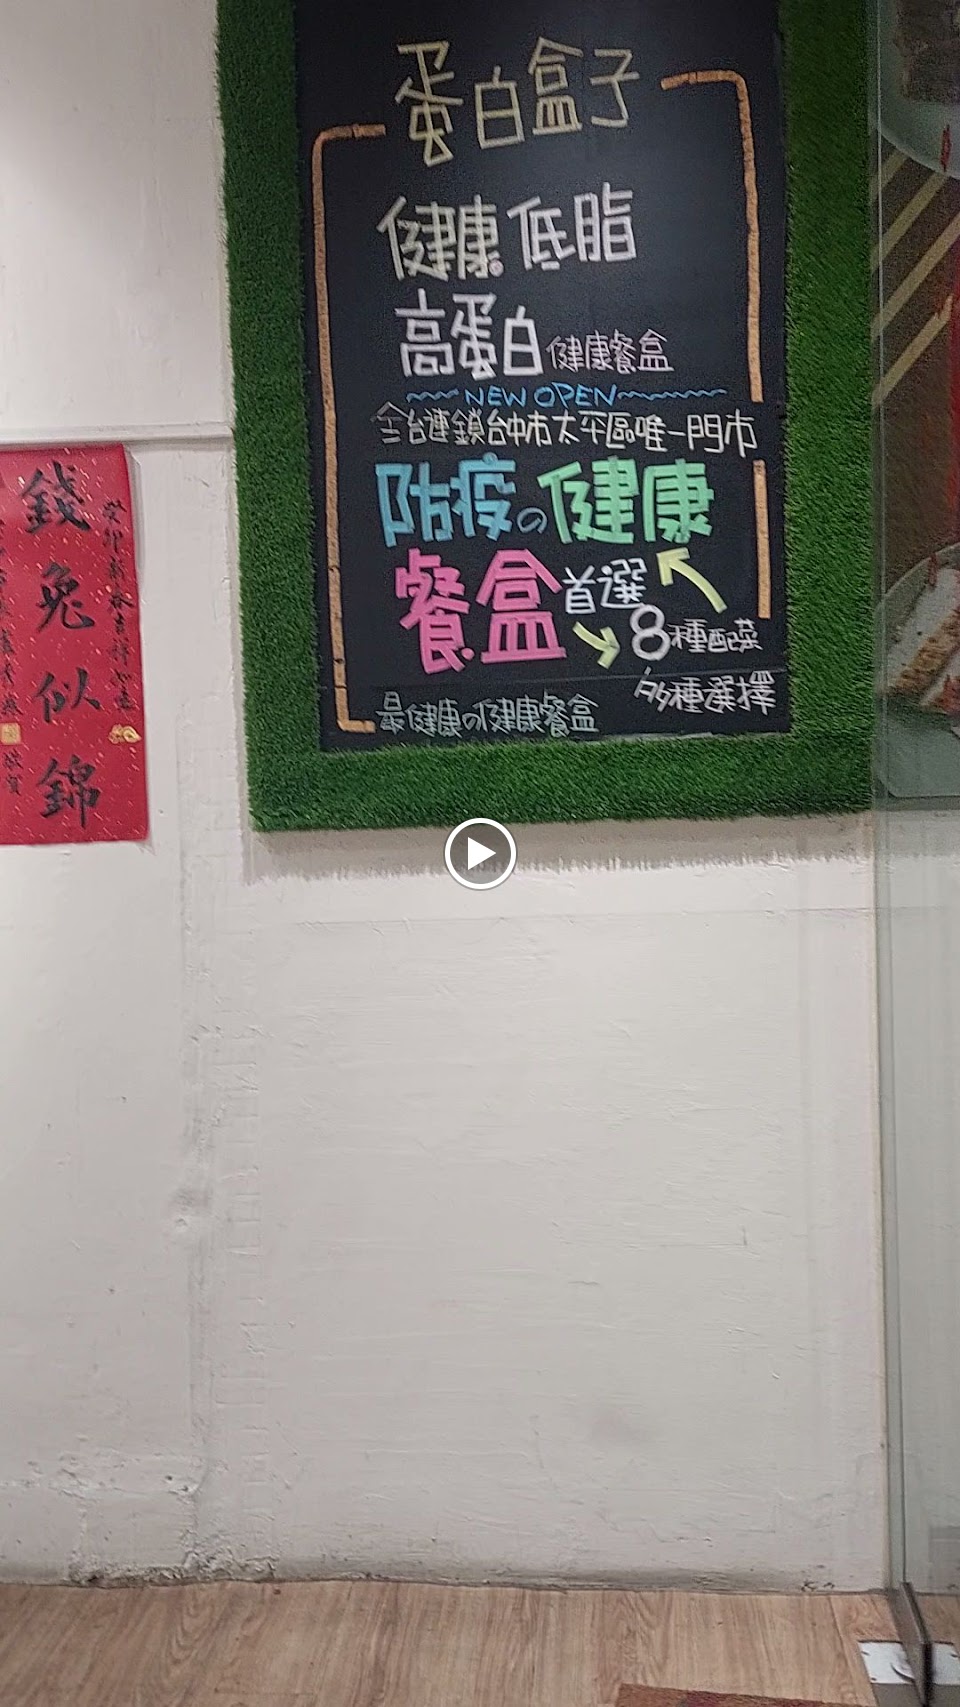 蛋白盒子
健康 低脂
高蛋白健康餐盒
NEW OPEN
全台連鎖台中市太平區唯一門市
防疫の健康
餐盒首選
8種配菜
多種選擇
最健康の健康餐盒
錢兔似錦
癸卯新春吉祥如意
敬賀